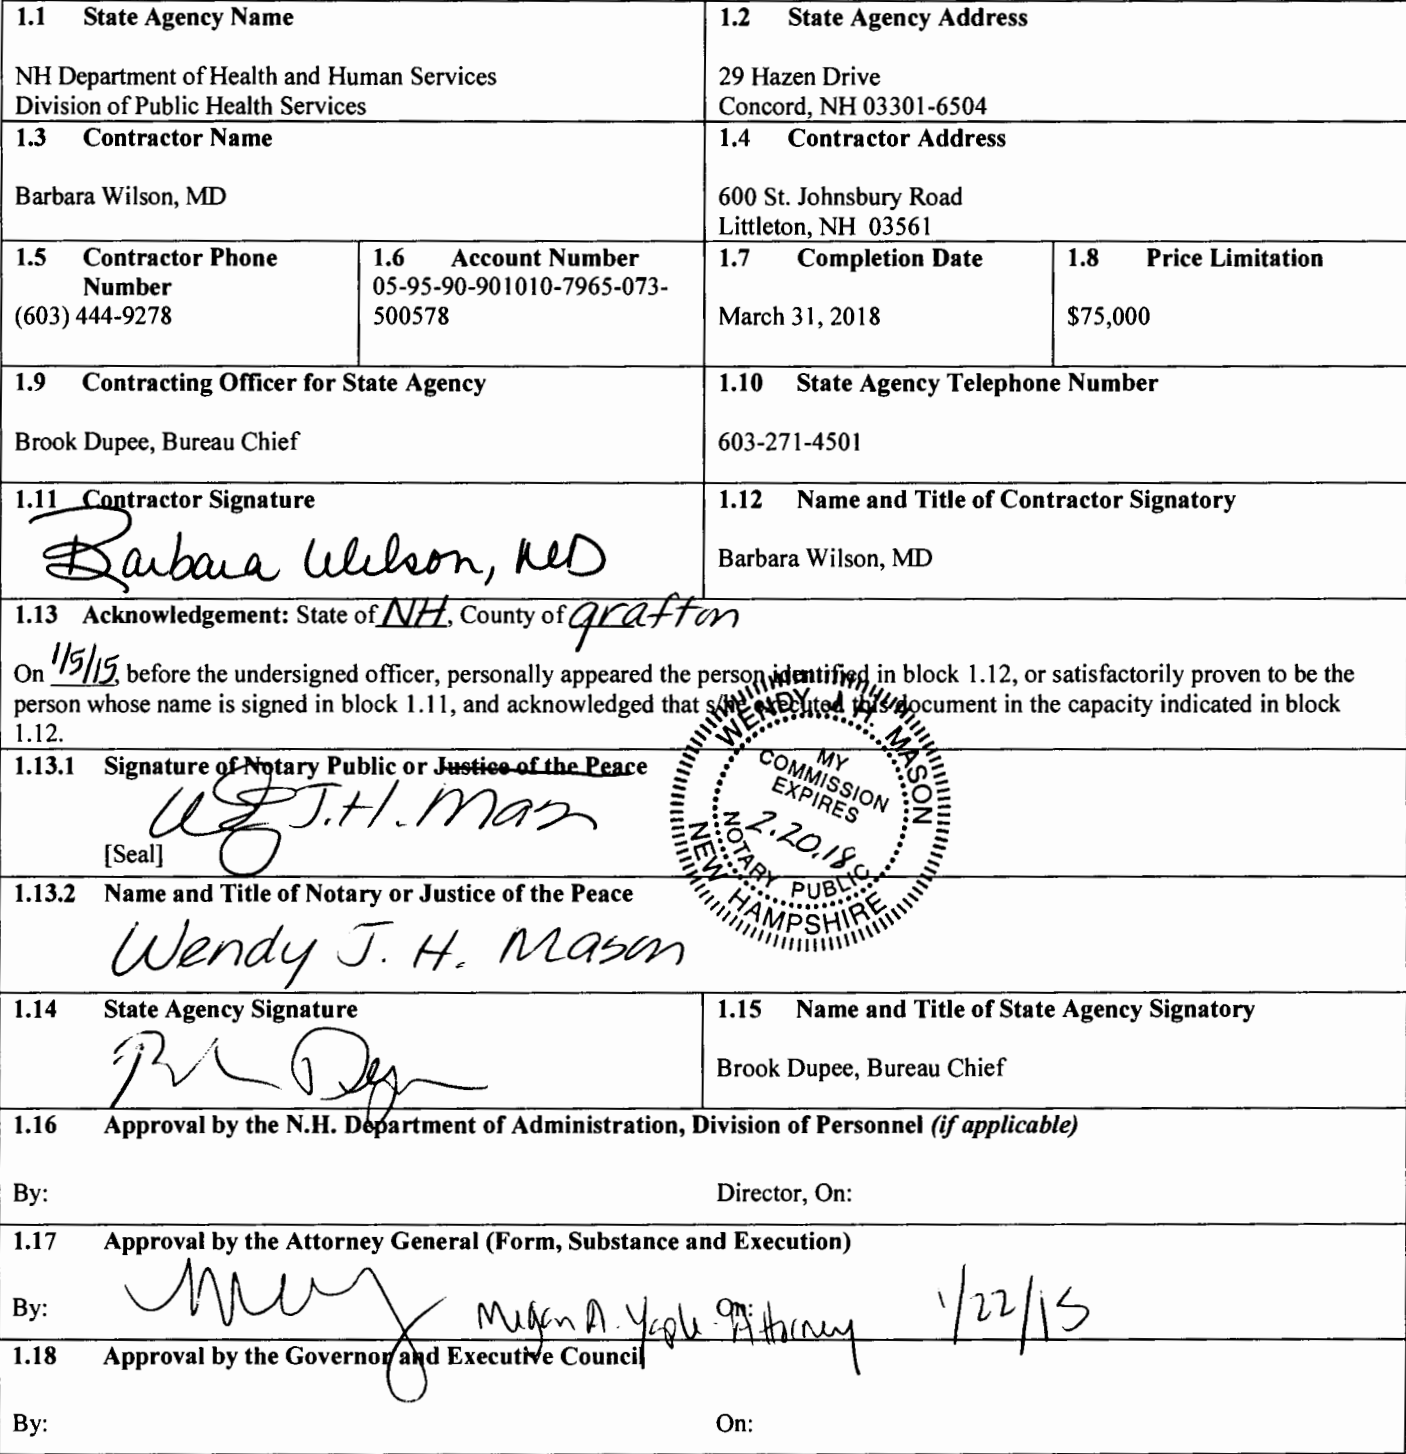 1.1 State Agency Name
NH Department of Health and Human Services
Division of Public Health Services
1.2 State Agency Address
29 Hazen Drive
Concord, NH 03301-6504
1.3 Contractor Name
Barbara Wilson, MD
1.4 Contractor Address
600 St. Johnsbury Road
Littleton, NH 03561
1.5 Contractor Phone
Number
(603) 444-9278
1.6 Account Number
05-95-90-901010-7965-073-
500578
1.7 Completion Date
March 31, 2018
1.8 Price Limitation
$75,000
1.9 Contracting Officer for State Agency
Brook Dupee, Bureau Chief
1.10 State Agency Telephone Number
603-271-4501
1.11 Contractor Signature
Barbara Wilson, MD
1.12 Name and Title of Contractor Signatory
Barbara Wilson, MD
1.13 Acknowledgement: State of NH, County of grafton
On 1/5/15, before the undersigned officer, personally appeared the person identified in block 1.12, or satisfactorily proven to be the
person whose name is signed in block 1.11, and acknowledged that s/he executed this document in the capacity indicated in block
1.12.
1.13.1 Signature of Notary Public or Justice of the Peace
J.H. Mason
[Seal]
WENDY J. H. MASON
MY
COMMISSION
EXPIRES
2.20.18
NOTARY PUBLIC
NEW HAMPSHIRE
1.13.2 Name and Title of Notary or Justice of the Peace
Wendy J. H. Mason
1.14 State Agency Signature
1.15 Name and Title of State Agency Signatory
Brook Dupee, Bureau Chief
1.16 Approval by the N.H. Department of Administration, Division of Personnel (if applicable)
By:
Director, On:
1.17 Approval by the Attorney General (Form, Substance and Execution)
By: Megan A. Yaple - Attorney On: 1/22/15
1.18 Approval by the Governor and Executive Council
By:
On: